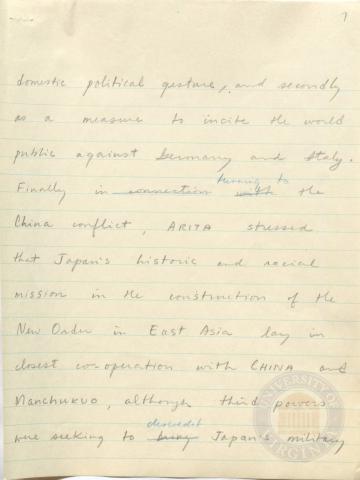 7
domestic political gesture, and secondly
as a measure to incite the world
public against Germany and Italy.
Finally in connection with turning to the
China conflict, ARITA stressed
that Japan's historic and racial
mission in the construction of the
New Order in East Asia lay in
closest co-operation with CHINA and
MANCHUKUO, although third powers
were seeking to bring discredit Japan's military
UNIVERSITY OF VIRGINIA